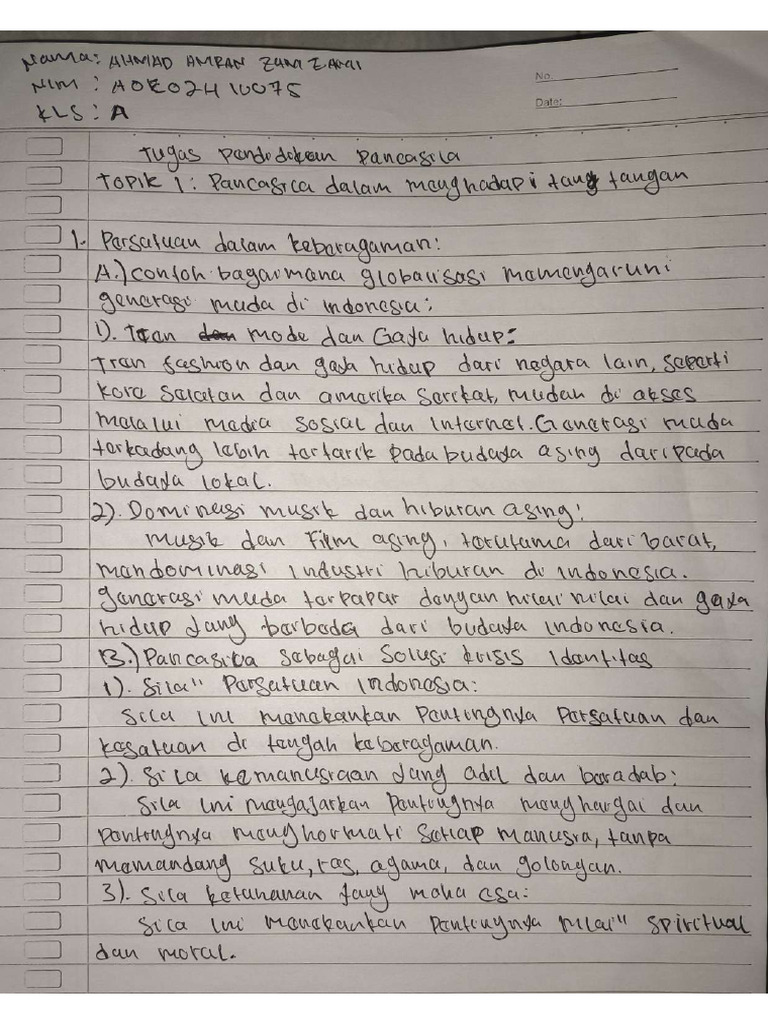 Nama: AHMAD AMRAN ZAMZAMI
NIM : A0E02410075
KLS : A
No.
Date:
Tugas Pendidikan Pancasila
Topik 1: Pancasila dalam menghadapi tang tangan
1. Persatuan dalam keberagaman:
A.) contoh bagaimana globalisasi memengaruni
generasi muda di indonesia:
1). Tran mode dan Gaya hidup:
Tran fashion dan gaya hidup dari negara lain, seperti
Kore Selatan dan amerika Serikat, mudah di akses
melalui media sosial dan internet. Generasi muda
terkadang lebih tertarik pada budaya asing daripada
budaya lokal.
2). Dominasi musik dan hiburan asing:
musik dan Film asing, terutama dari barat,
mendominasi industri hiburan di indonesia.
generasi muda terpapar dengan nilai nilai dan gaya
hidup yang berbeda dari budaya indonesia.
B.) Pancasila sebagai Solusi krisis Identitas
1). Sila" Persatuan Indonesia:
Sila ini menekankan Pentingnya Persatuan dan
kesatuan di tengah keberagaman.
2). Sila kemanusiaan yang adil dan beradab:
Sila ini mengajarkan Pentingnya menghargai dan
pentingnya menghormati setiap manusia, tanpa
memandang suku, ras, agama, dan golongan.
3). Sila ketuhanan yang maha esa:
Sila ini menekankan Pentingnya nilai" spiritual
dan moral.